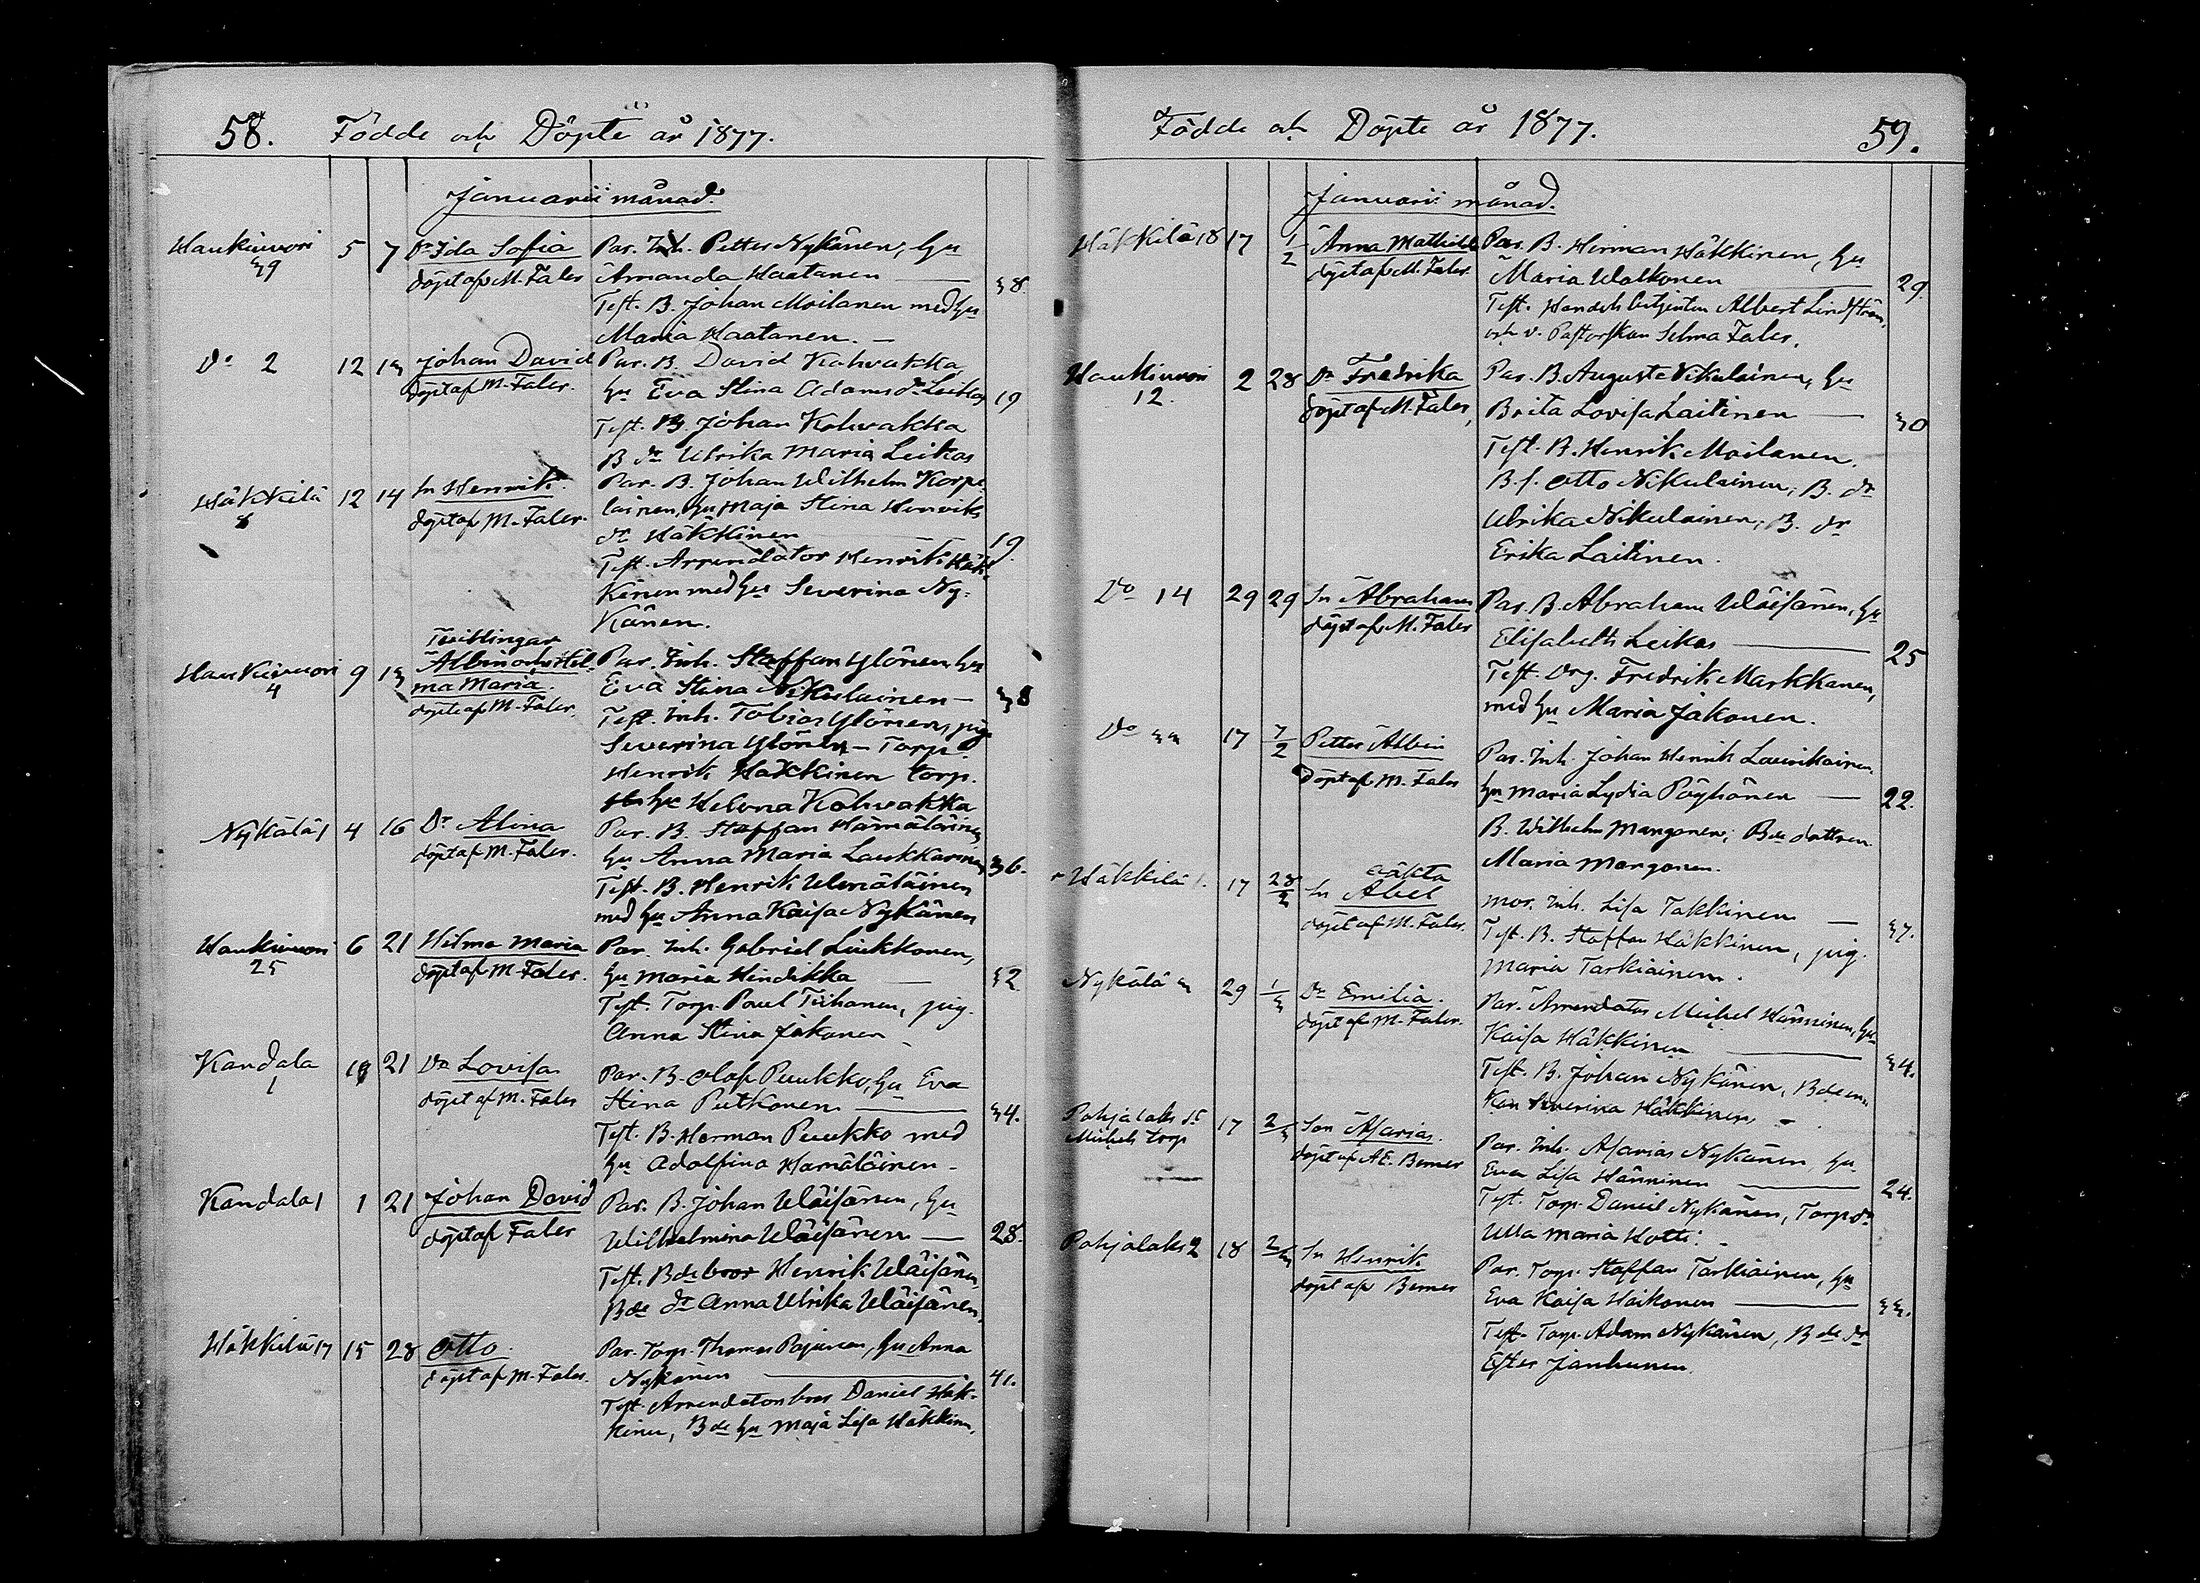 58. Födde och Döpte år 1877.
Januarii månad.
Haukivuori 39 5 7 Dr Ida Sofia Par. Inh. Petter Nykänen, hu
döpt af M. Faler Amanda Haatanen 38
Test. B. Johan Moilanen med hu
Maria Haatanen.
Do 2 12 13 Johan David Par. B. David Kohvakka
döpt af M. Faler. hu Eva Stina Adams dr Leikas 19
Test. B. Johan Kohvakka
B dr Ulrika Maria Leikas
Häkkilä 12 14 Sn Henrik Par. B. Johan Wilhelm Korpe-
döpt af M. Faler. lainen, hu Maja Stina Henriks
dr Häkkinen 19.
Test. Arrendator Henrik Häk-
känen med hu Severina Ny-
känen.
Haukivuori 4 9 13 Tvillingar
Albin och Hil- Par. Inh. Staffan Ylönen hu
ma Maria. Eva Stina Nikulainen 38
döpte af M. Faler. Test. Inh. Tobias Ylönen, pig.
Severina Ylönen – Torp.
Henrik Häkkinen torp.
hu Helena Kohvakka
Nykälä 1 4 16 Dr Alina Par. B. Staffan Hämäläinen,
döpt af M. Faler. hu Anna Maria Laukkarinen 36.
Test. B. Henrik
med hu Anna Kaisa Nykänen
Haukivuori 25 6 21 Hilma Maria Par. Inh. Gabriel Liukkonen,
döpt af M. Faler. hu Maria Hindikka 32
Test. Torp. Paul Tiihonen, pig.
Anna Stina Jakonen
Kandala 1 21 Dr Lovisa Par. B. Olof Puukko, hu Eva
döpt af M. Faler Stina Putkonen 34.
Test. B. Herman Puukko med
hu Adolfina Hämäläinen.
Kandala 1 1 21 Johan David Par. B. Johan Wäisänen, hu
döpt af Faler Wilhelmina Wäisänen 28.
Test. Bde bror Henrik Wäisänen,
Bde dr Anna Ulrika Wäisänen,
Häkkilä 17 15 28 Otto. Par. Torp. Thomas Pajunen, hu Anna
döpt af M. Faler. Nykänen 41.
Test. Arrendators bror Daniel Häk-
kinen, Bde hu Maja Lisa Häkkinen.
Födde och Döpte år 1877. 59.
Januarii månad.
Häkkilä 18 17 1/2 Anna Mathilda Par. B. Herman Häkkinen, hu
döpt af M. Faler. Maria Walkonen 29.
Test. Handels Albert Lindström,
och v. Pastorskan Selma Faler.
Haukivuori 12. 2 28 Dr Fredrika Par. B. August Nikulainen, hu
döpt af M. Faler, Brita Lovisa Laitinen 30
Test. B. Henrik Moilanen.
B. s. Otto Nikulainen, B. dr
Ulrika Nikulainen, B. dr
Erika Laitinen.
Do 14 29 29 Sn Abraham Par. B. Abraham Wäisänen, hu
döpt af M. Faler Elisabeth Leikas 25
Test. Drg. Fredrik Markkanen,
med hu Maria Jakonen.
Do 33 17 7/2 Petter Albin Par. Inh. Johan Henrik Laurikainen
döpt af M. Faler hu Maria Lydia Pöyhönen 22.
B. Wilhelm Manganen, Bde dottren
Maria Manganen.
Häkkilä 1. 17 28/2 oäkta
Sn Abel Mor. Inh. Lisa Takkinen 37.
döpt af M. Faler. Test. B. Staffan Häkkinen, pig.
Maria Tarkiainen.
Nykälä 3 29 1/3 Dr Emilia. Par. Arrendator Michel Hänninen, hu
döpt af M. Faler. Kaisa Häkkinen 34.
Test. B. Johan Nykänen, Bde en-
kan Severina Häkkinen
Pohjalaks 17 2/3 Son Asarias. Par. Inh. Asarias Nykänen, hu
Michels torp döpt af A. E. Berner Eva Lisa Hänninen 24.
Test. Torp. Daniel Nykänen, Torp dr
Ulla Maria Hotti.
Pohjalaks 2 18 2/3 Sn Henrik Par. Torp. Staffan Tarkiainen, hu
döpt af Berner Eva Kaisa Haikonen 33.
Test. Torp. Adam Nykänen, Bde dr
Ester Janhunen.